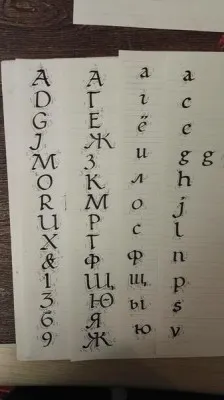 A
D
G
J
M
O
R
U
X
&
1
3
6
9
А
Г
Е
Ж
З
К
М
Р
Т
Ф
Щ
Ю
Я
Ж
а
і
ё
и
л
о
с
ф
щ
ы
ю
a
c
e
g g
h
j
l
n
p
s
v